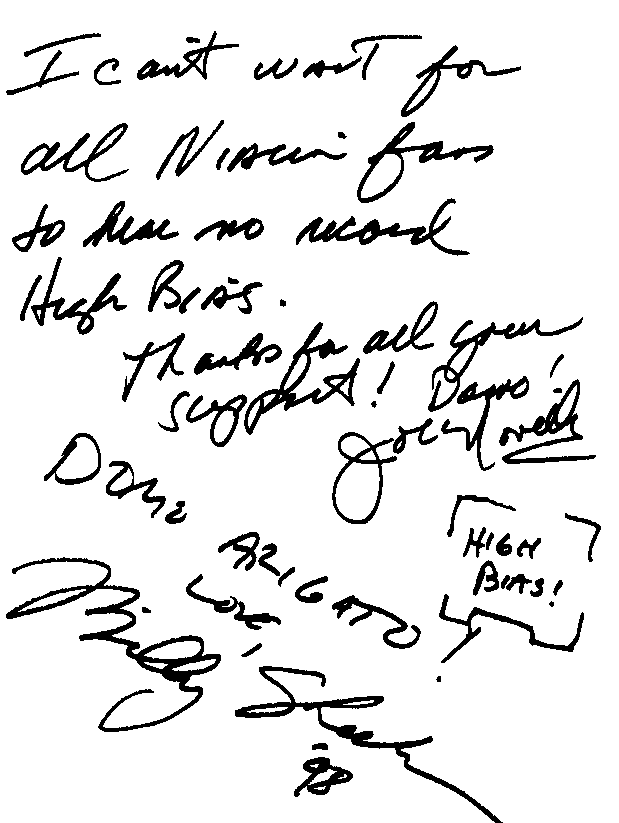 I can't wait for
all Niacin fans
to hear no record
High Bias.
Thanks for all your
support! Domo!
John Novello
Domo
ARIGATO
Love,
Billy Sheehan
'98
HIGH
BIAS!